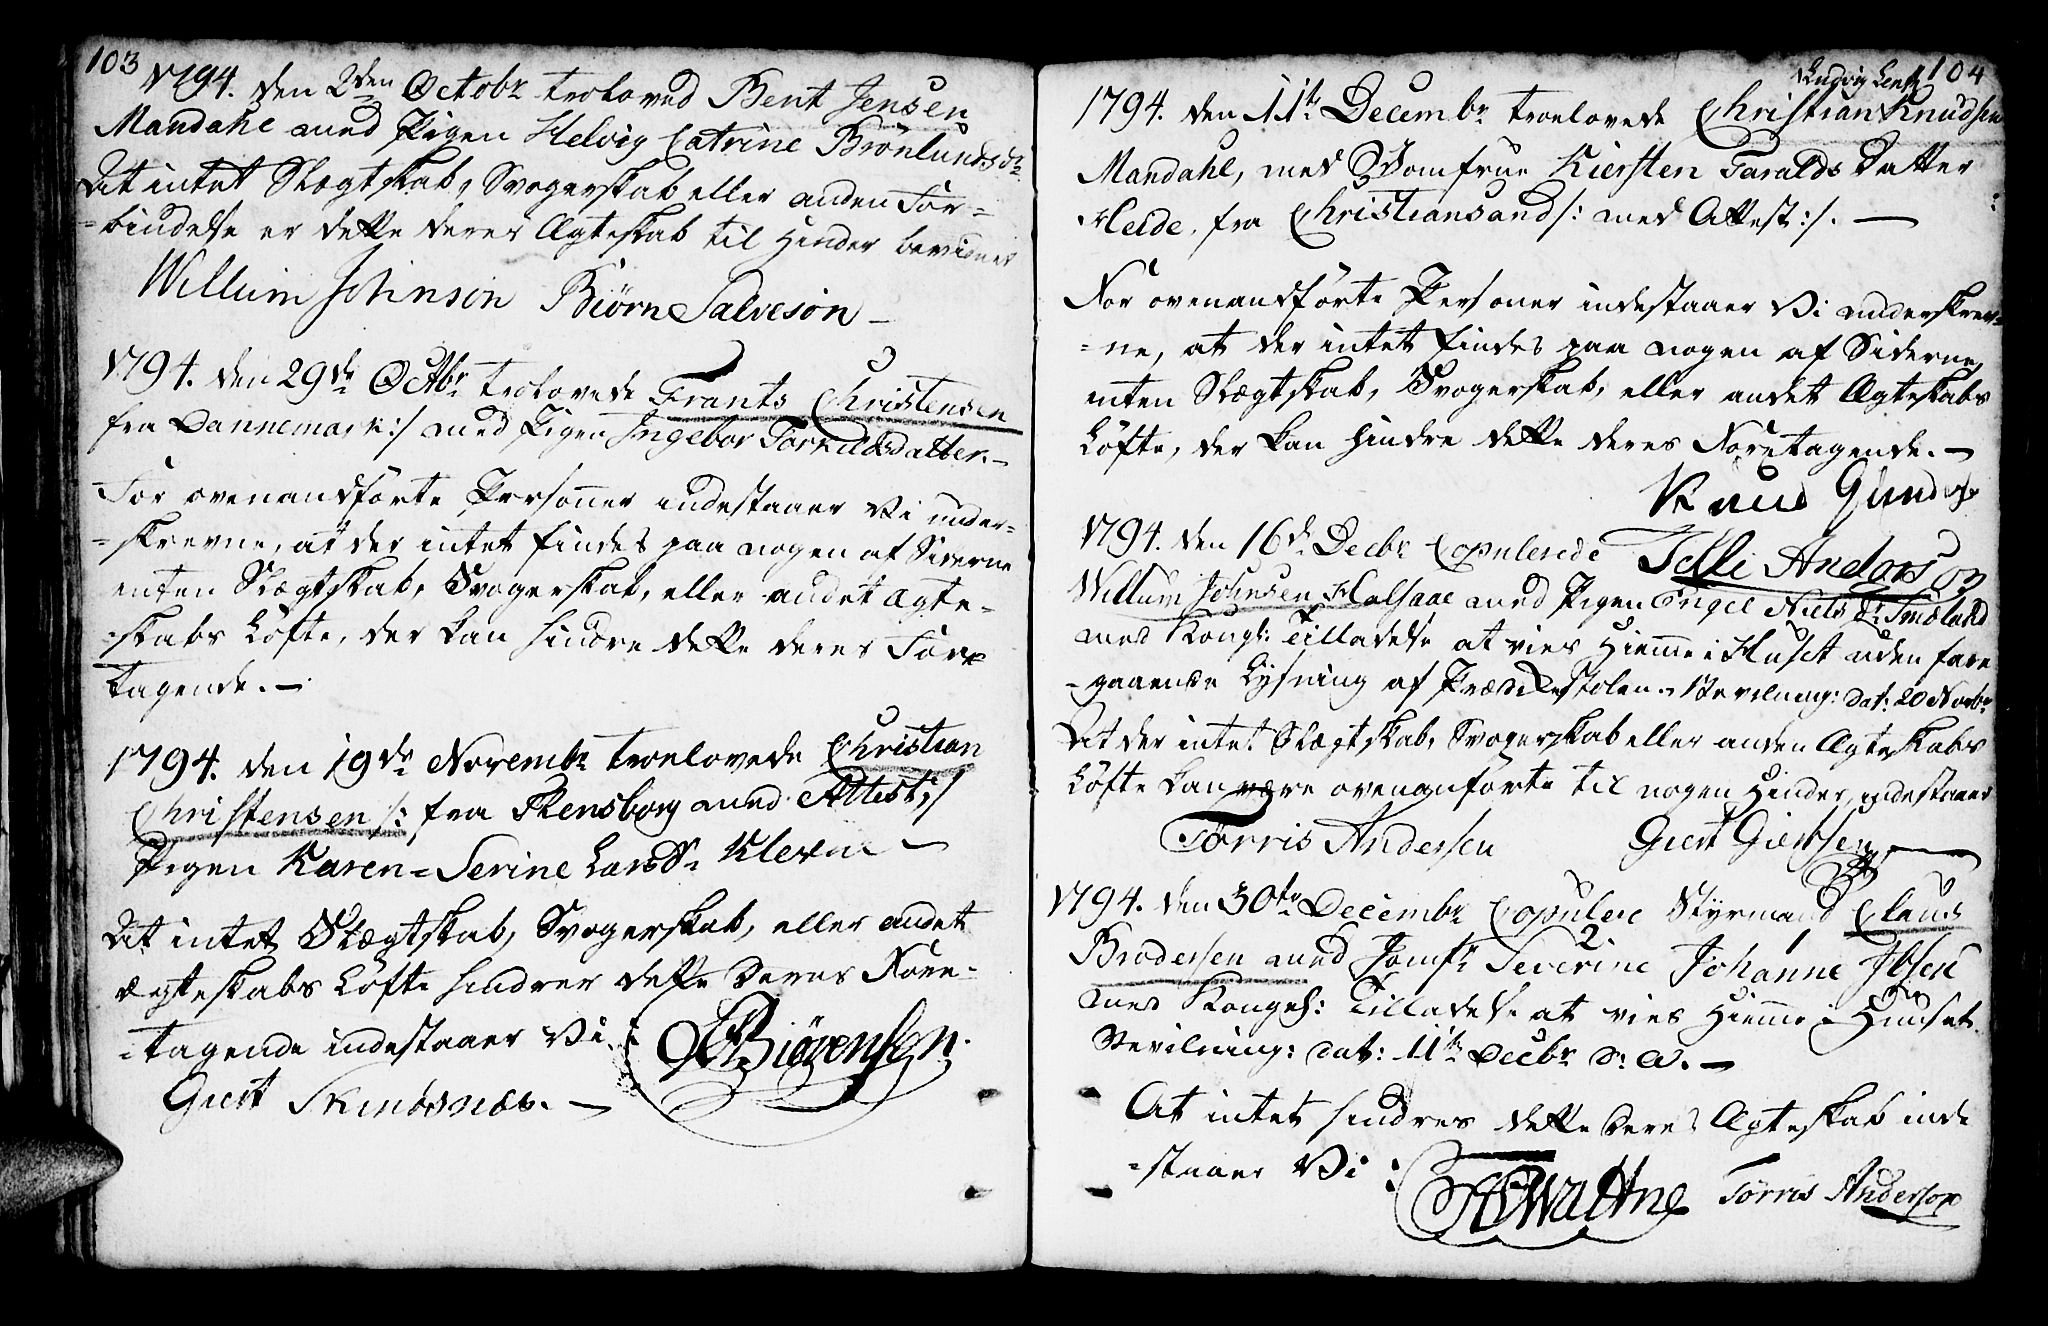 103
1794. den 2den Octobr troloved Bent Jensen
Mandahl med Pigen Helvig Catrine Brönlunds Dr
At intet Slægtskab, Svogerskab eller anden For=
=bindelse er dette deres Ægteskab til Hinder bevidner
Willum Johnson Biörn Salveson
1794. den 29de Octbr trolovede Frants Christensen
fra Dannemark :/ med Pigen Ingebor Torkildsdatter.
For ovenandførte Personer indestaaer Vi under=
=skrevne, at der intet findes paa nogen af Siderne
enten Slægtskab, Svogerskab, eller andet Ægte=
=skabs Løfte, der kan hindre dette deres Fore
tagende.
1794. den 19de Novembr troelovede Christian
Christensen /: fra Flensborg med Attest :/
Pigen Karen=Serine Lars Dr Kleven
At intet Slægtskab, Svogerskab, eller andet
Ægteskabs Løfte hindrer dette Deres Fore=
=tagende indestaaer Vi:
Biörensen.
Giert Skinösnæs.
104
Ludvig Lentz
1794. den 11te Decembr troelovede Christian Knudsen
Mandahl, med Jomfrue Kiersten Faralds Datter
Heide, fra Christiansand /: med Attest :/.
For ovenandførte Personer indestaaer Vi underskrev=
=ne, at der intet findes paa nogen af Siderne,
enten Slægtskab, Svogerskab, eller andet Ægteskabs
Løfte, der kan hindre dette deres Foretagende.
Knud
1794. den 16de Decbr Copulerede
Telli Anderson
Willum Johnsen Halsaae med Pigen Engel Niels Dr Smöland
med Kongl: Tilladelse at vies Hiemme i Huset uden fore
=gaaende Lysning af Prædikestolen. Bevilning: dat: 20 Novbr
At der intet Slægtskab, Svogerskab eller anden Ægteskabs
Løfte kan være ovenanførte til nogen Hinder, indestaaer
Törris Andersen Giert Giertsen
1794. den 30te Decembr Copulere Styrmand Claus
Brodersen med Jomfr Severine 2 Johanne 1 Ibsen
med Kongel: Tilladelse at vies Hiemme i Huuset.
Bevilning: dat: 11te Decbr D: A.
At intet hindres dette Deres Ægteskab inde
=staaer Vi:
Wattne Törris Anderson